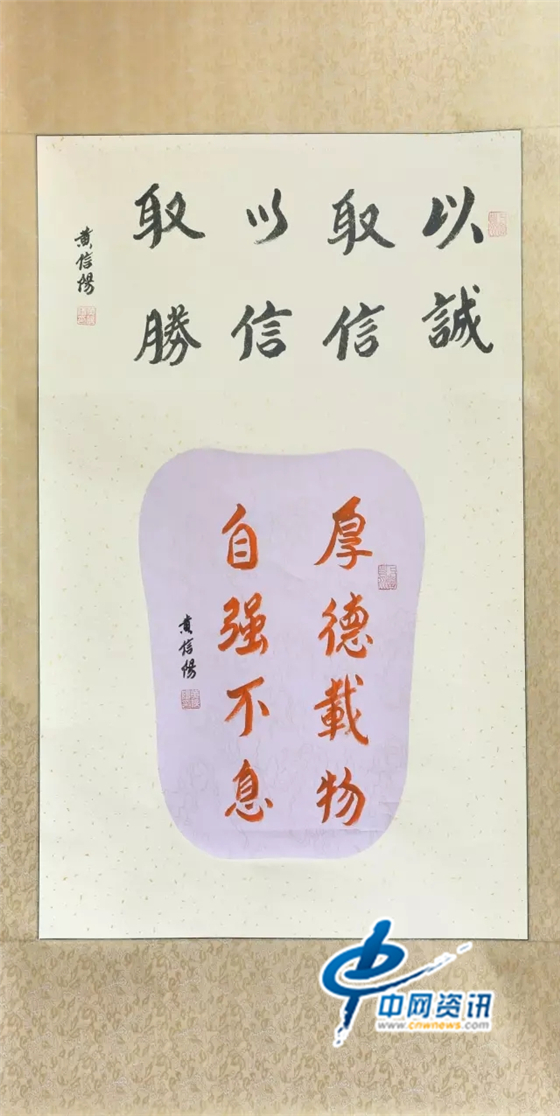 以誠
取信
以信
取勝
黄信陽
厚德載物
自强不息
黄信陽
中网资讯
www.cnwnews.com